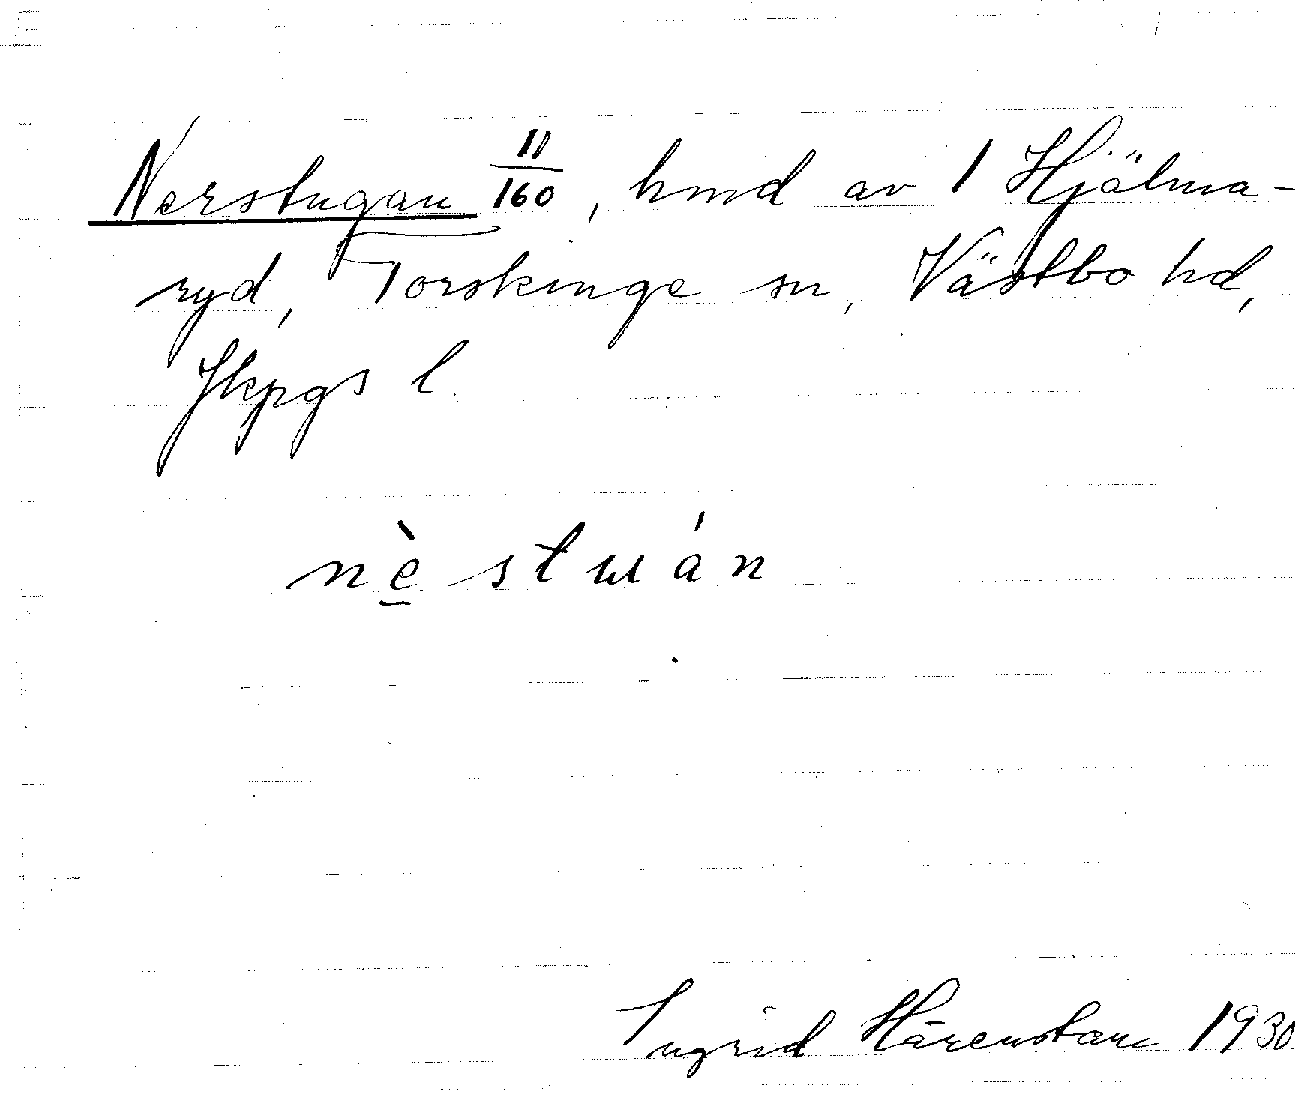 Nerstugan 11/160, hmd av 1 Hjälma-
ryd, Torskinge sn, Västbo hd,
Jkpgs l.
nè̱stuán
Ingrid Härenstam 1930